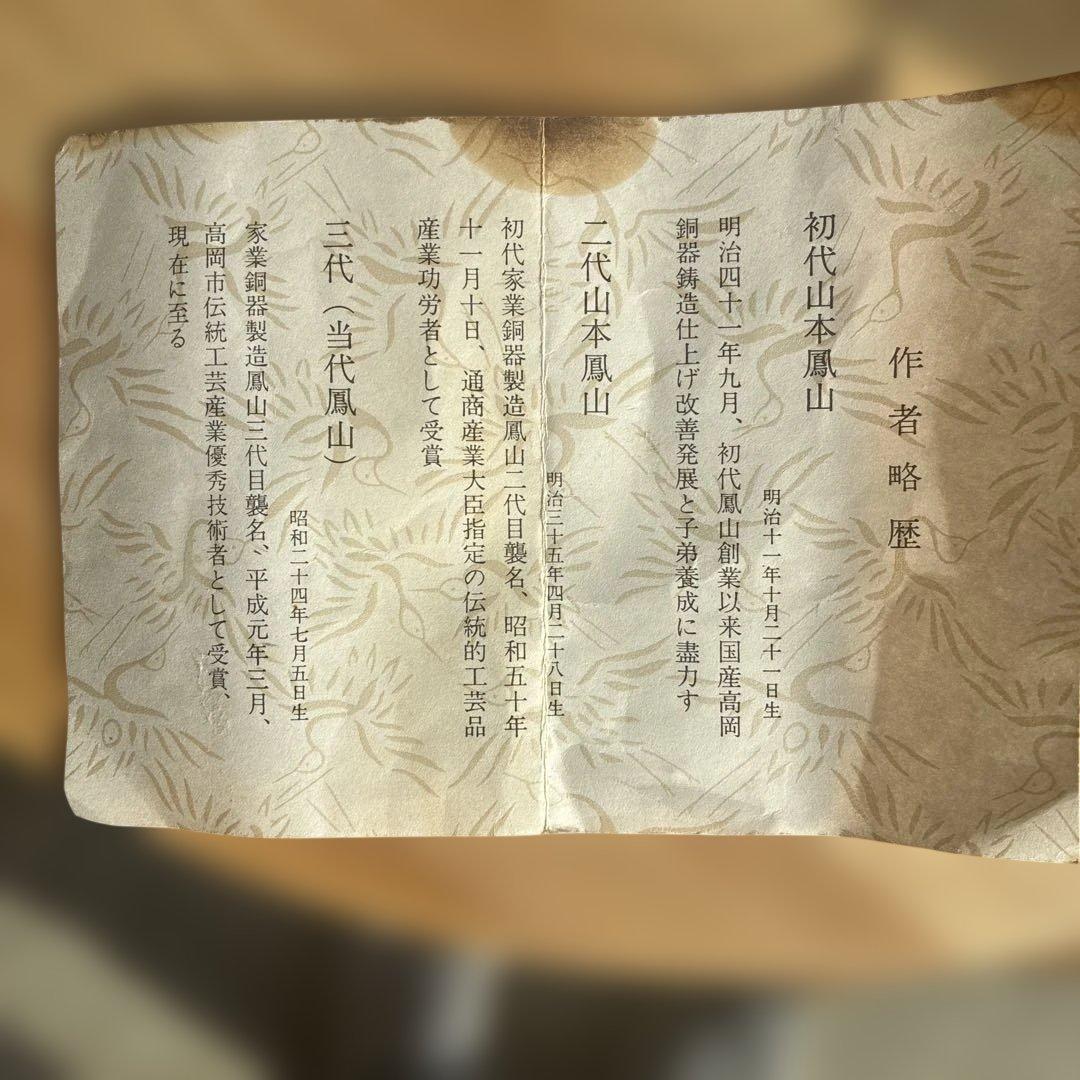 作者略歴
初代山本鳳山
明治十一年十月二十一日生
明治四十一年九月、初代鳳山創業以来国産高岡
銅器鋳造仕上げ改善発展と子弟養成に盡力す
二代山本鳳山
明治三十五年四月二十八日生
初代家業銅器製造鳳山二代目襲名、昭和五十年
十一月十日、通商産業大臣指定の伝統的工芸品
産業功労者として受賞
三代（当代鳳山）
昭和二十四年七月五日生
家業銅器製造鳳山三代目襲名〟平成元年三月、
高岡市伝統工芸産業優秀技術者として受賞、
現在に至る